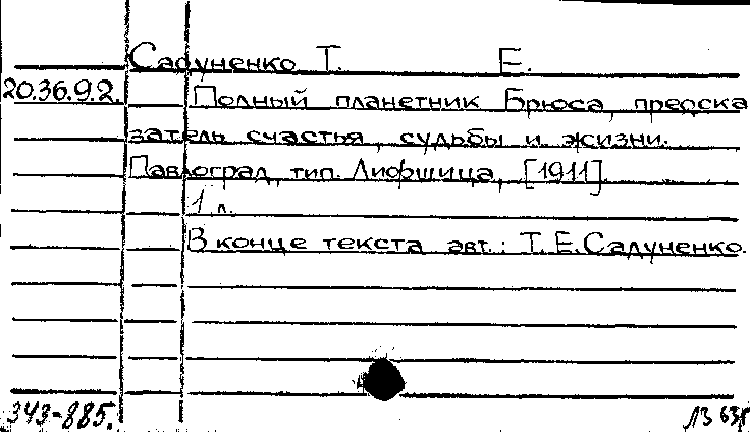 Садуненко Т. Е.
20.36.9.2. Полный планетник Брюса, предска
затель счастья, судьбы и жизни.
Павлоград, тип. Лифшица, [1911].
1 л.
В конце текста авт.: Т. Е. Садуненко.
343-885.